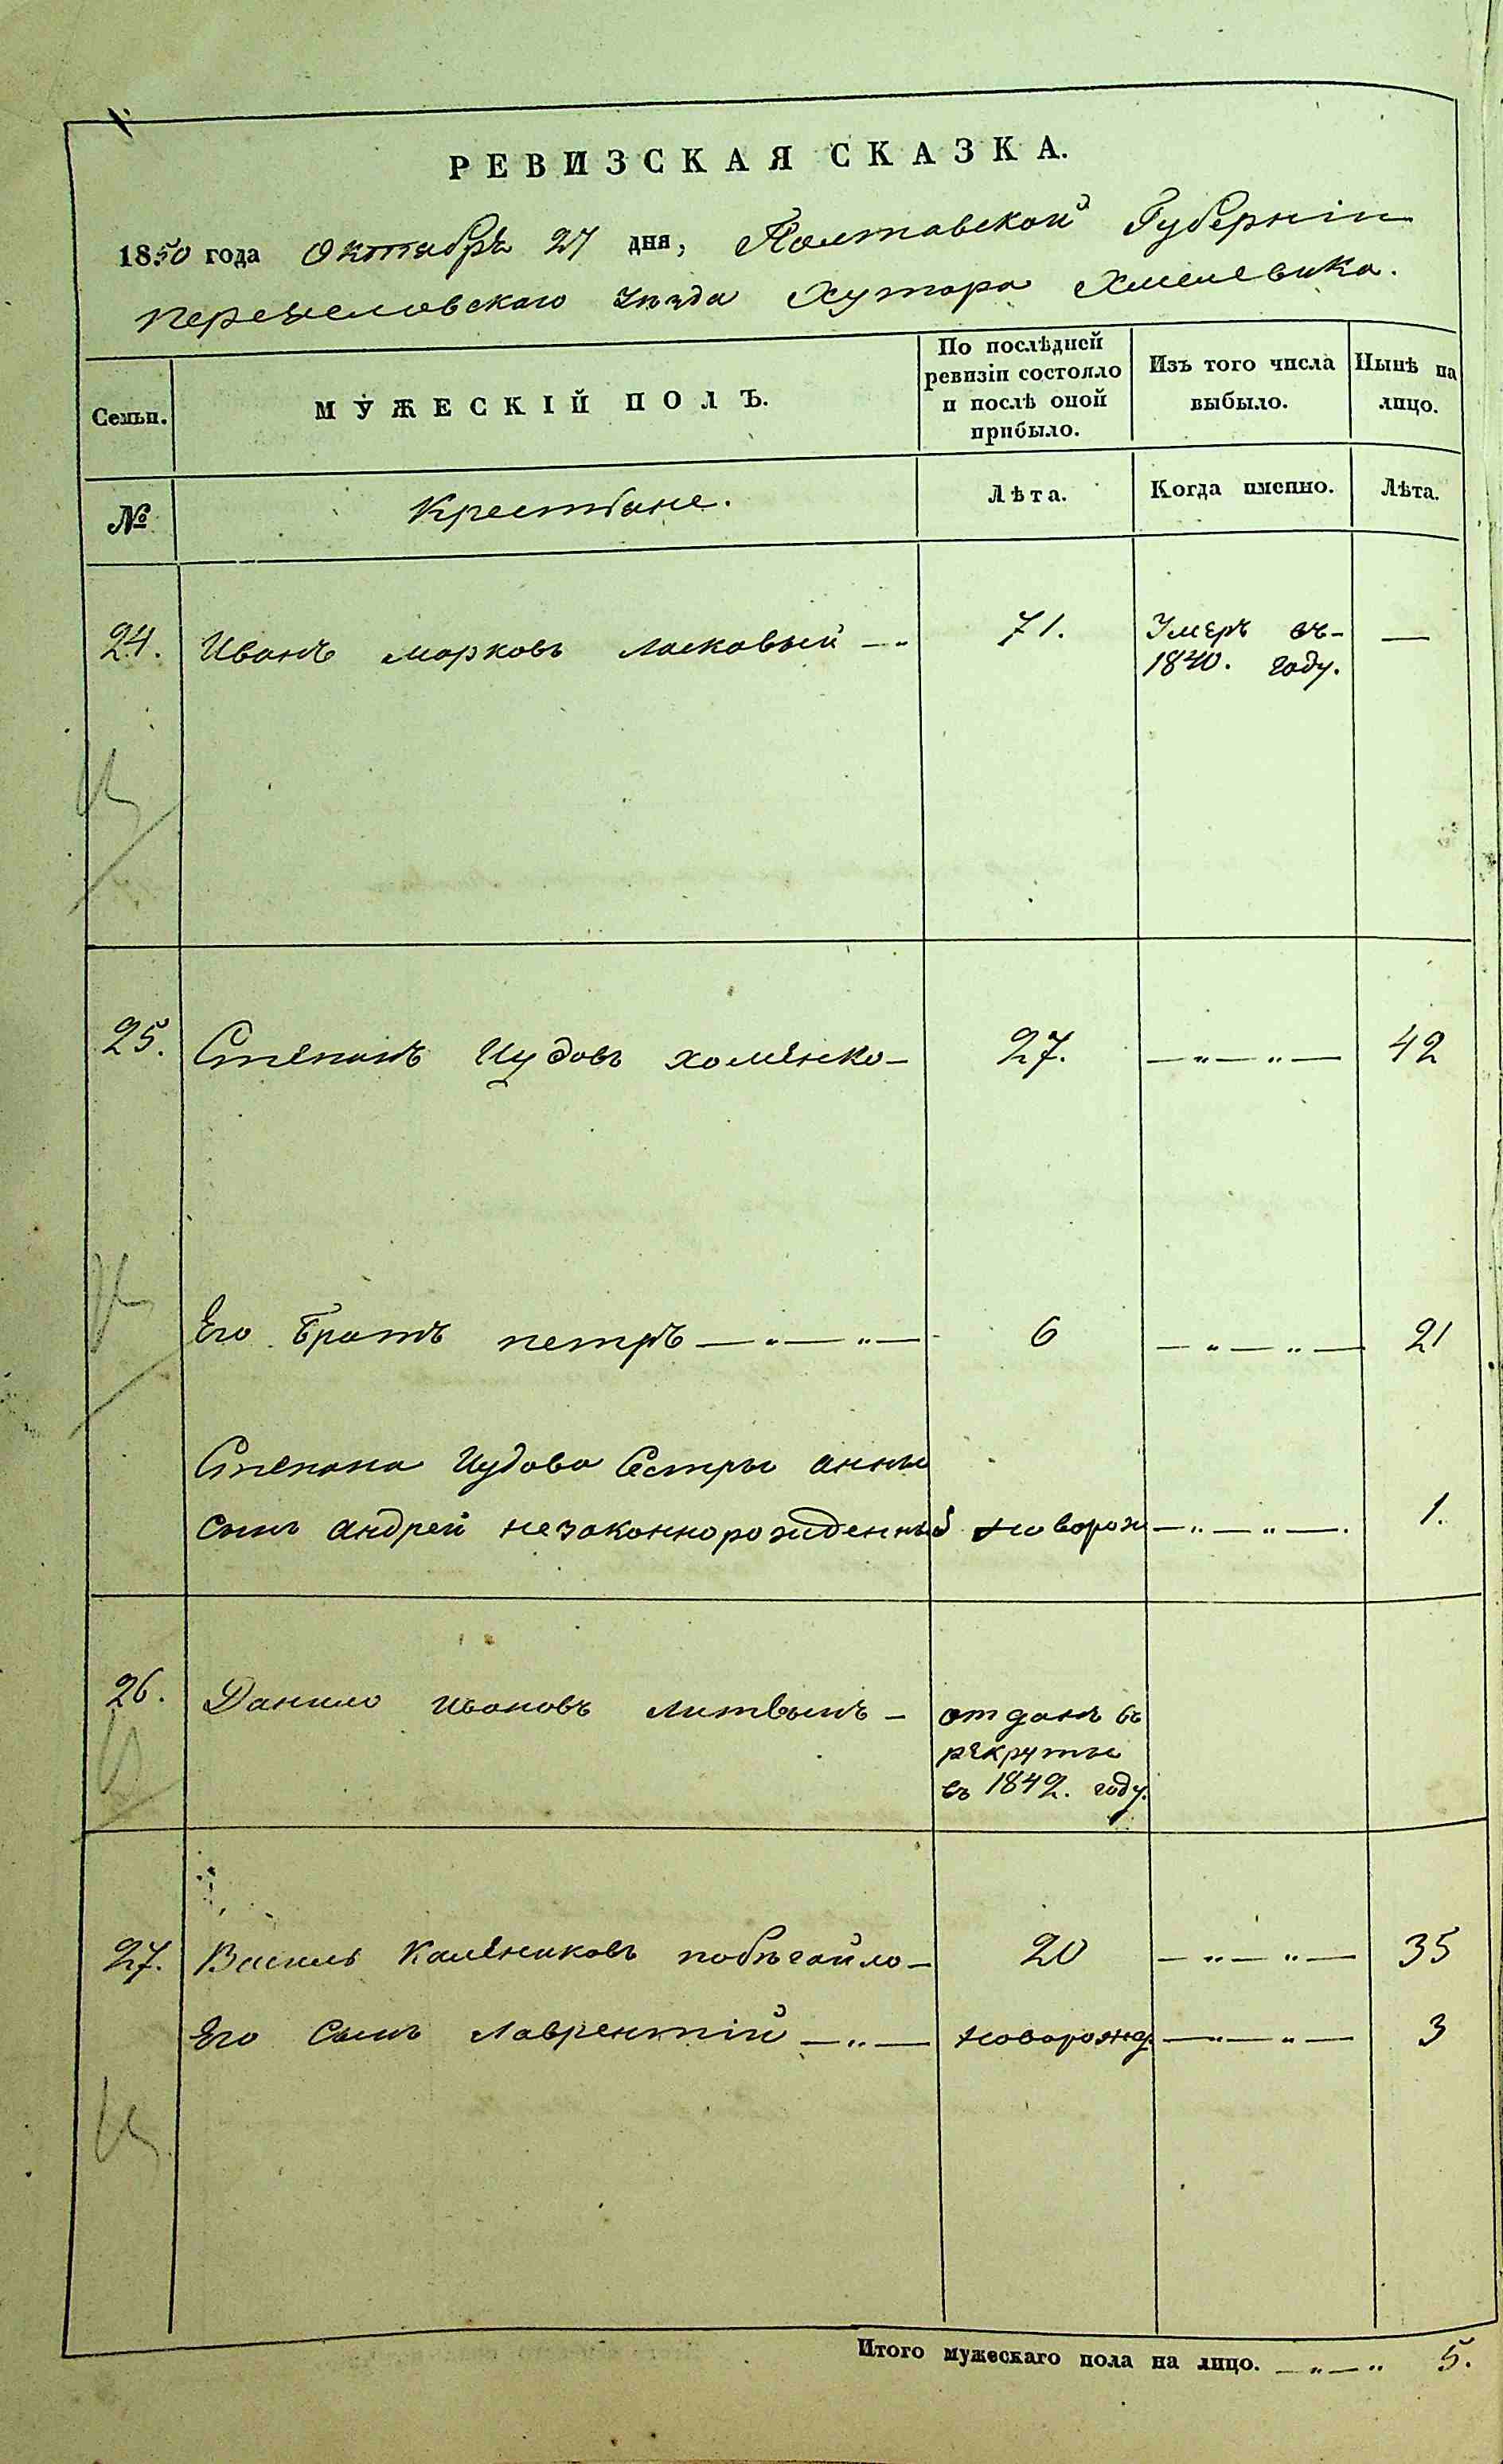 РЕВИЗСКАЯ СКАЗКА.
1850 года Октября 27 дня, Полтавской Губерніи
Переяславскаго уезда Хутора Хмелевика.
Семьи.
МУЖЕСКІЙ ПОЛЪ.
По послѣдней ревизіи состояло и послѣ оной прибыло.
Изъ того числа выбыло.
Нынѣ на лицо.
№
Крестьяне.
Лѣта.
Когда именно.
Лѣта.
24. Иванъ Марковъ Ласкавый —" 71. Умеръ въ —
1840. году.
25. Степанъ Иудовъ хоменко — 27. —"—"— 42
Его Братъ петръ —"—"— 6 —"—"— 21
Степана Иудова Сестры анны
сынъ андрей незаконнорожденный новорож —"—"—. 1.
26. Данило Ивановъ Литвынъ — отданъ въ
рекруты
въ 1842. году.
27. Василь Калениковъ побѣгайло — 20 —"—"— 35
Его Сынъ Лаврентій —"— новорожд. —"—"— 3
Итого мужескаго пола на лицо. —"—" 5.